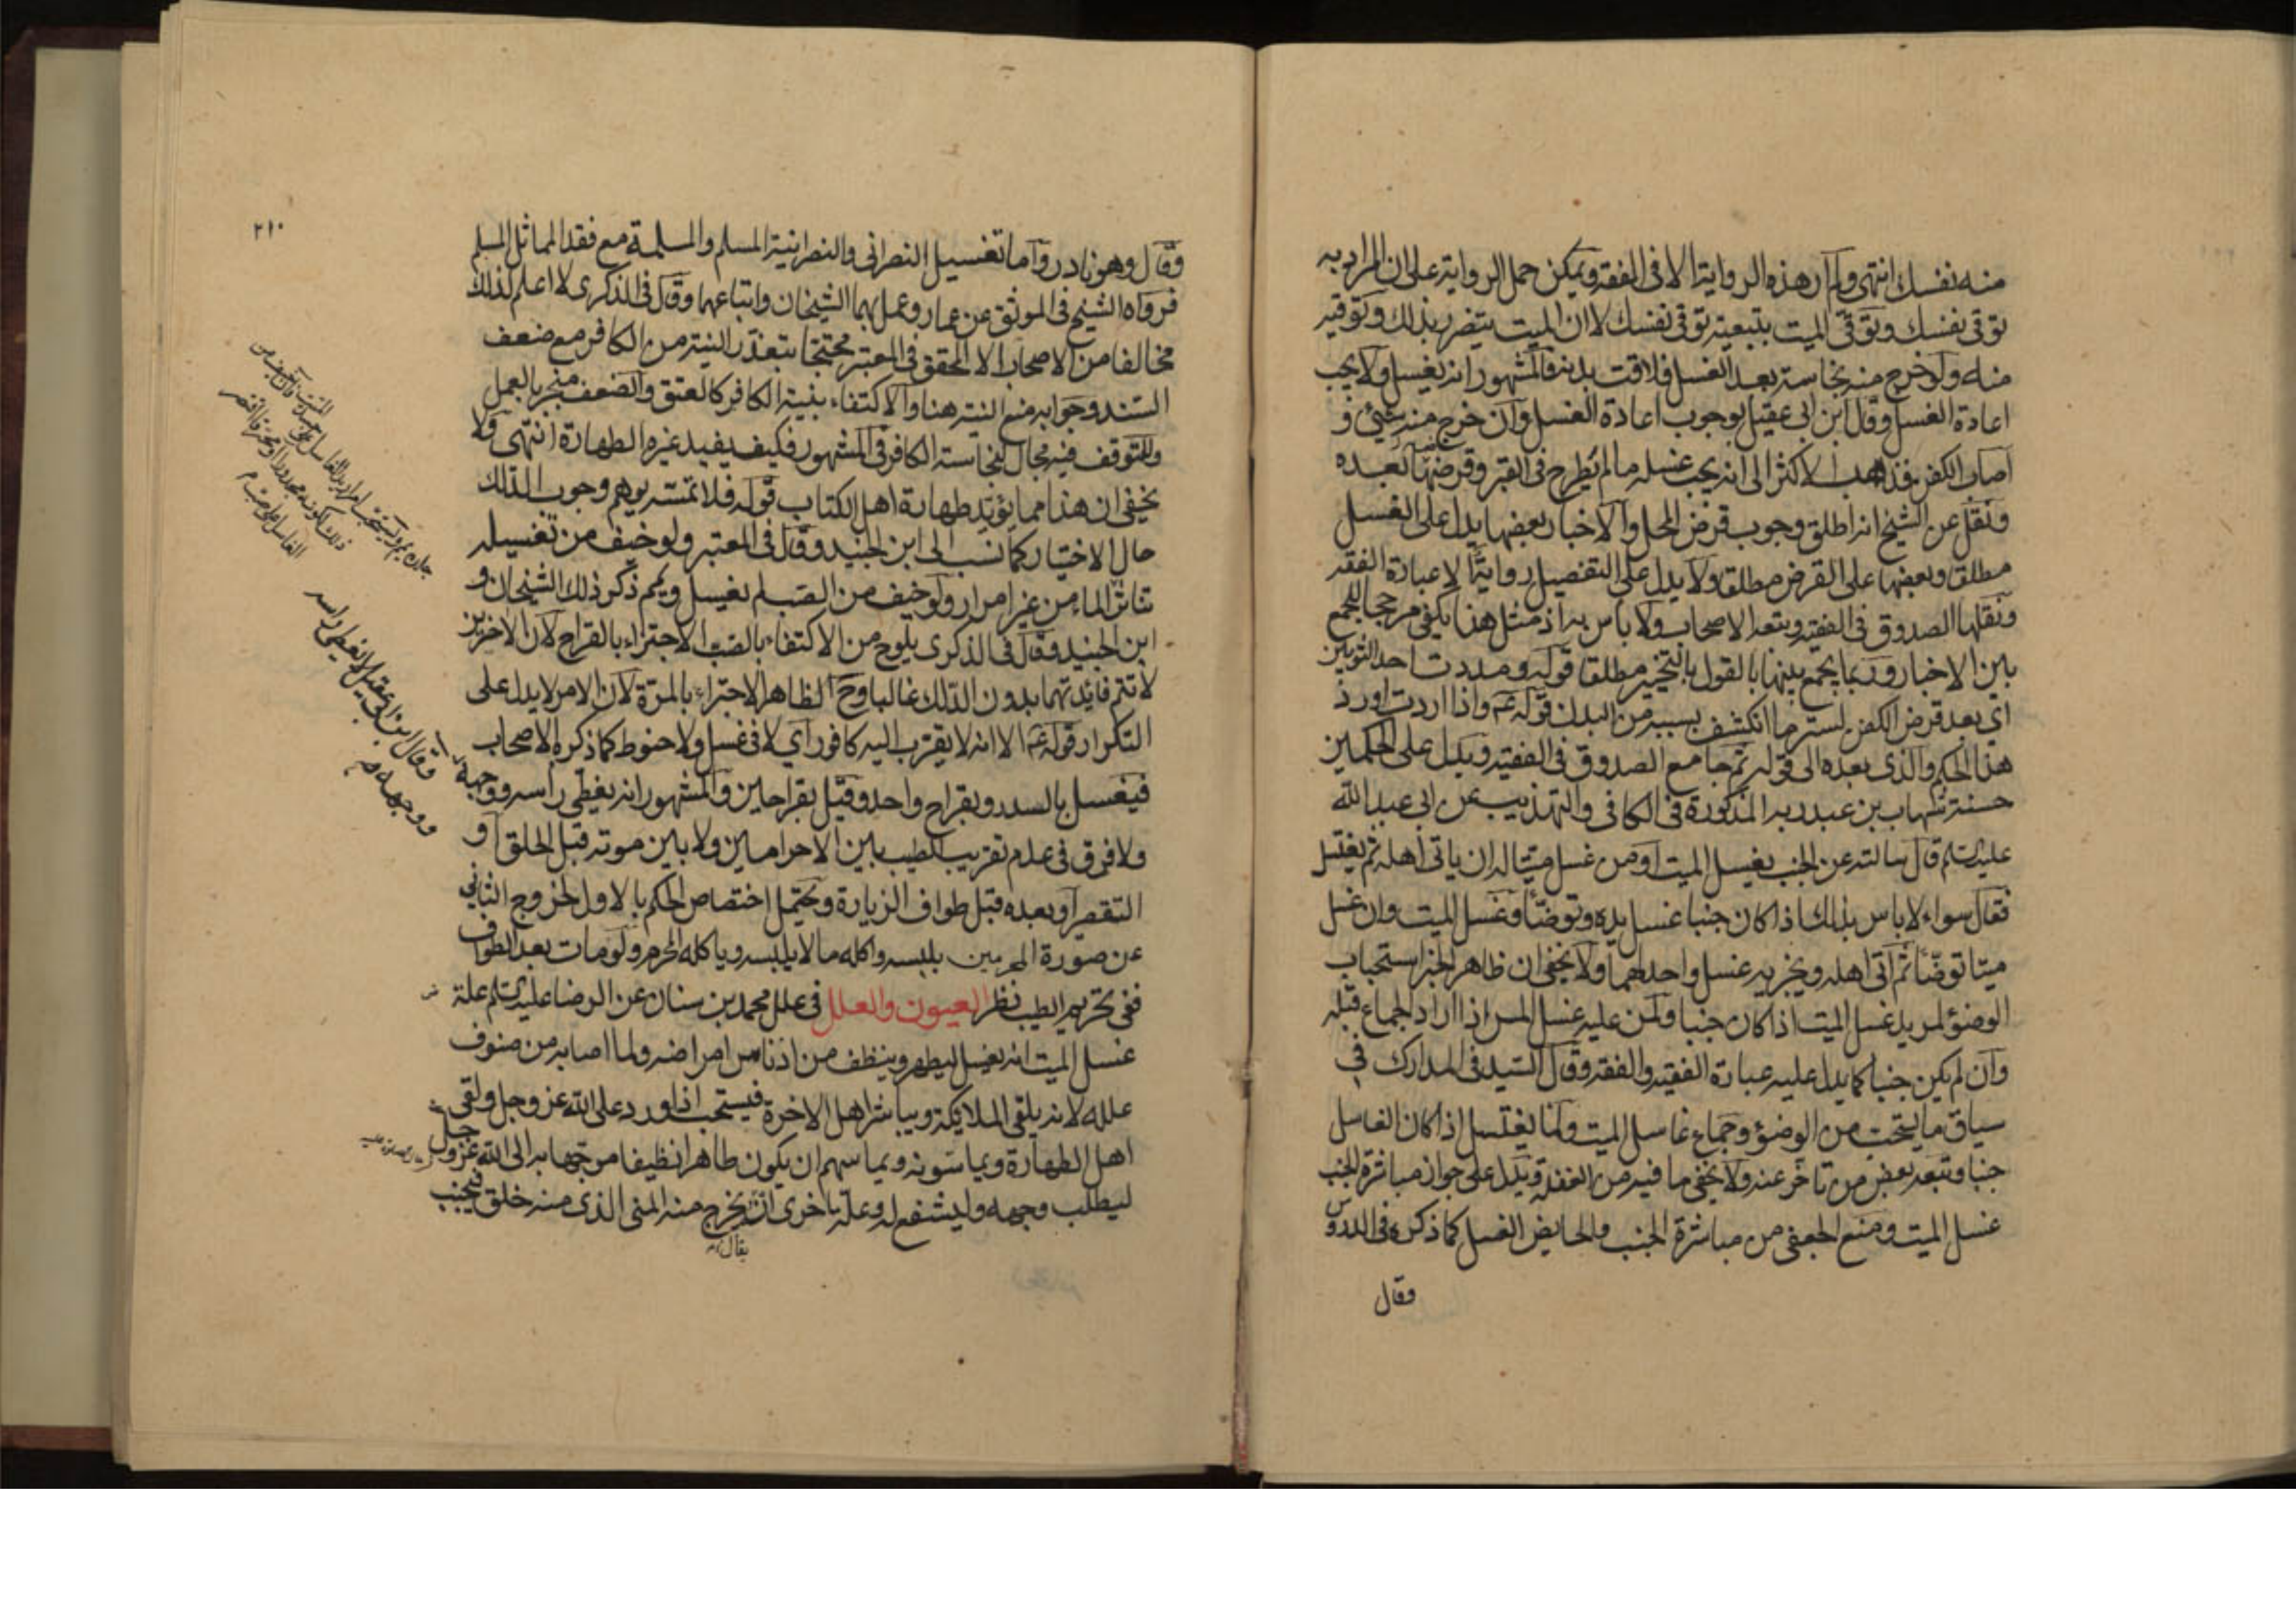 منه نفسك انتهى ولم ار هذه الرواية الا فى الفقه ويمكن حمل الرواية على ان المراد به
توقى نفسك وتوقى الميت بتبعية توقى نفسك لا ان الميت يتضرر بذلك وتوقيه
منه ولو خرج منه نجاسة بعد الغسل فلاقت بدنه فالمشهور انه يغسل ولا يجب
اعادة الغسل وقال ابن ابى عقيل بوجوب اعادة الغسل وان خرج منه شئ و
اصاب الكفن فذهب الاكثر الى انه يجب غسله ما لم يطرح فى القبر وقرضها بعده
ونقل عن الشيخ انه اطلق وجوب قرض المحل والاخبار بعضها يدل على الغسل
مطلقا وبعضها على القرض مطلقا ولا يدل على التفصيل رواية الا عبارة الفقه
ونقلها الصدوق فى الفقيه وتبعه الاصحاب ولا باس به اذ مثل هذا يكفى مرجحا للجمع
بين الاخبار وربما يجمع بينها بالقول بالتخيير مطلقا قوله ومددت احد الثوبين
اى بعد قرض الكفن لستر ما انكشف بسببه من البدن قوله ع واذا اردت اورد
هذا الحكم والذى بعده الى قوله ثم جامع الصدوق فى الفقيه ويدل على الحكمين
حسنة شهاب بن عبد ربه المذكورة فى الكافى والتهذيب عن ابى عبد الله
عليه السلم قال سالته عن الجنب يغسل الميت او من غسل ميتا له ان ياتى اهله ثم يغتسل
فقال سواء لا باس بذلك اذا كان جنبا غسل يده وتوضأ وغسل الميت وان غسل
ميتا توضأ ثم اتى اهله ويجزيه غسل واحد لهما ولا يخفى ان ظاهر الخبر استحباب
الوضوء لمريد غسل الميت اذا كان جنبا ولمن عليه غسل المس اذا اراد الجماع قبله
وان لم يكن جنبا كما يدل عليه عبارة الفقيه والفقه وقال السيد فى المدارك فى
سياق ما يستحب من الوضوء وجماع غاسل الميت ولما يغتسل اذا كان الغاسل
جنبا وتبعه بعض من تاخر عنه ولا يخفى ما فيه من الغفلة ويدل على جواز مباشرة الجنب
غسل الميت ومنع الجعفى من مباشرة الجنب والحايض الغسل كما ذكره فى الدروس
فقال
٢١٠
وقال وهو نادر واما تغسيل النصرانى والنصرانية المسلم والمسلمة مع فقد المماثل المسلم
فرواه الشيخ فى الموثق عن عمار وعمل بهما الشيخان واتباعهما وقال فى الذكرى لا اعلم لذلك
مخالفا من الاصحاب الا المحقق فى المعتبر محتجا بتعذر النية من الكافر مع ضعف
السند وجوابه منع النية هنا والاكتفاء بنية الكافر كالعتق والضعف منجبر بالعمل
وللتوقف فيه مجال لنجاسة الكافر فى المشهور فكيف يفيد غيره الطهارة انتهى ولا
يخفى ان هذا مما يؤيد طهارة اهل الكتاب قوله فلا تمسه يوهم وجوب الدلك
حال الاختيار كما نسب الى ابن الجنيد وقال فى المعتبر ولو خيف من تغسيله
تناثر الماء من غير امرار ولو خيف من الصب لم يغسل ويمم ذكر ذلك الشيخان و
ابن الجنيد وقال فى الذكرى يلوح من الاكتفاء بالصب الاجتزاء بالقراح لان الاخرين
لا تتم فائدتهما بدون الدلك غالبا وح الظاهر الاجتزاء بالمرة لان الامر لا يدل على
التكرار قوله ع الا انه لا يقرب اليه كافور اى لا فى غسل ولا حنوط كما ذكره الاصحاب
فيغسل بالسدر وبقراح واحد وقيل بقراحين والمشهور انه يغطى راسه ووجهه
ولا فرق فى عدم تقريب الطيب بين الاحرامين ولا بين موته قبل الحلق او
التقصير او بعده قبل طواف الزيارة ويحتمل اختصاص الحكم بالاول لخروج الثانى
عن صورة المحرمين بلبسه واكله ما لا يلبسه وياكله المحرم ولو مات بعد الطواف
ففى تحريم الطيب نظر العيون والعلل فى علل محمد بن سنان عن الرضا عليه السلم علة
غسل الميت انه يغسل ليطهر وينظف من ادناس امراضه ولما اصابه من صنوف
علله لانه يلقى الملائكة ويباشر اهل الاخرة فيستحب اذا ورد على الله عز وجل ولقى
اهل الطهارة ويماسونه ويماسهم ان يكون طاهرا نظيفا موجها به الى الله عز وجل
ليطلب وجهه وليشفع له وعلة اخرى انه يخرج منه المنى الذى منه خلق فيجنب
يقال
وقال ابن ابى عقيل لا يغطى راسه
ووجهه م